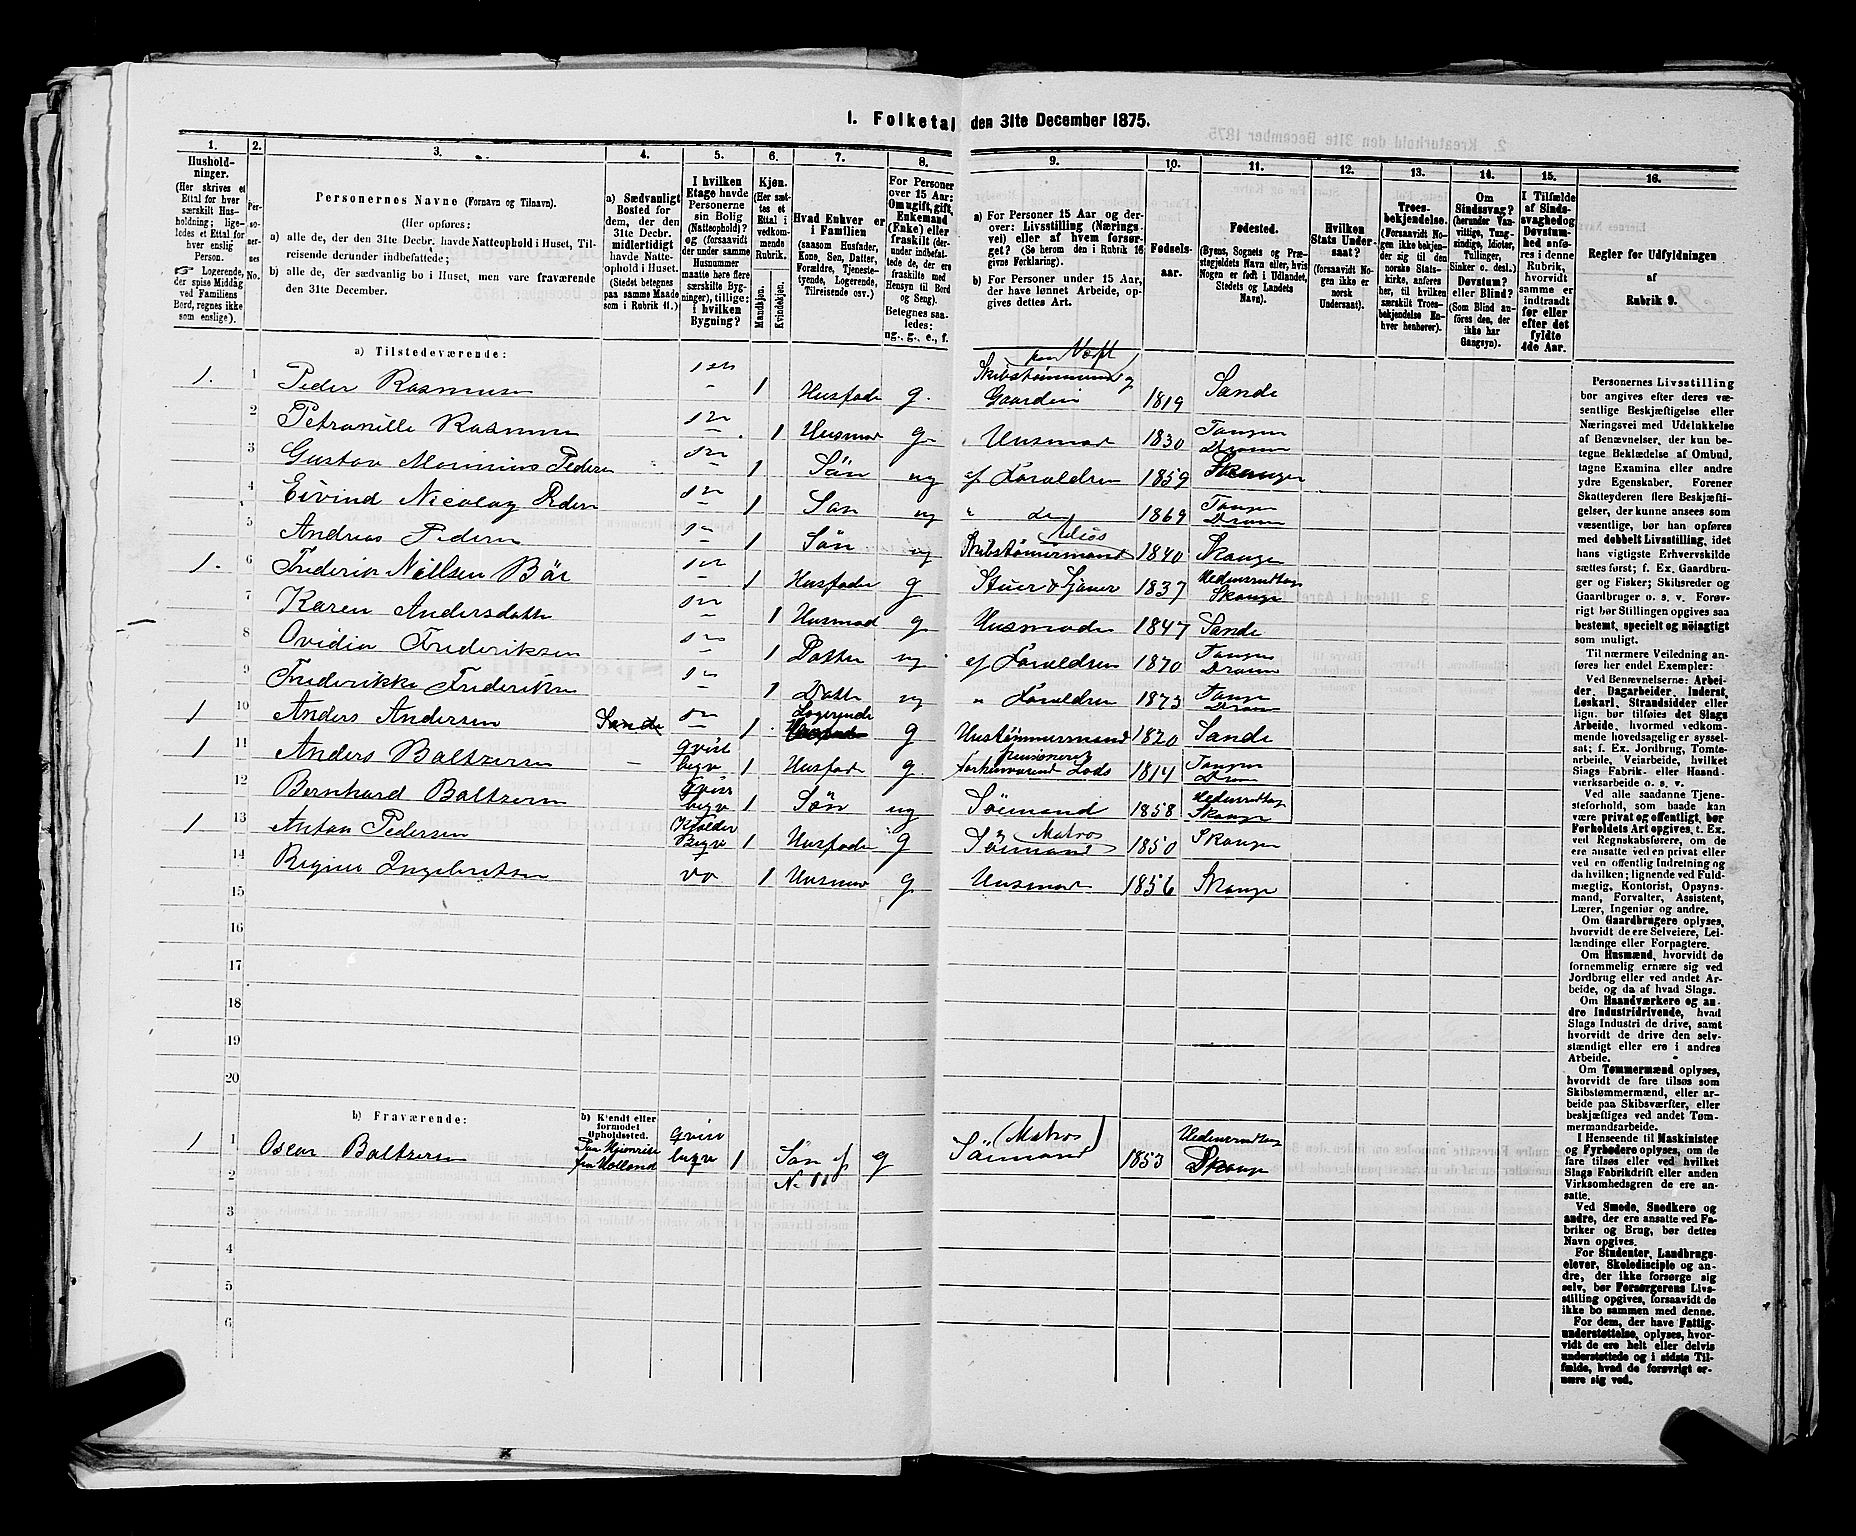 1. Folketal den 31te December 1875.
1. 2. 3. 4. 5. 6. 7. 8. 9. 10. 11. 12. 13. 14. 15. 16.
Hushold-
ninger.
(Her skrives et
Ettal for hver
særskilt Hus-
holdning; lige-
ledes et Ettal for
hver enslig
Person.
☞ Logerende,
der spise Middag
ved Familiens
Bord, regnes ikke
som enslige).
Per-
so-
ner-
nes
No.
Personernes Navne (Fornavn og Tilnavn).
(Her opføres:
a) alle de, der den 31te Decbr. havde Natteophold i Huset, Til-
reisende derunder indbefattede;
b) alle de, der sædvanlig bo i Huset, men vare fraværende
den 31te December.
a) Sædvanligt
Bosted for
dem, der den
31te Decbr.
midlertidigt
havde Natte-
ophold i Huset.
(Stedet betegnes
paa samme Maade
som i Rubrik 11.)
I hvilken
Etage havde
Personerne
sin Bolig
(Natteophold)?
og (forsaavidt
der under samme
Husnummer
maatte høre flere
særskilte Byg-
ninger), tillige:
i hvilken
Bygning?
Kjøn.
(Her sæt-
tes et
Ettal i
vedkom-
mende
Rubrik.
Mandkjøn.
Kvindekjøn.
Hvad Enhver er
i Familien
(saasom Husfader,
Kone, Søn, Datter,
Forældre, Tjeneste-
tyende, Logerende,
Tilreisende osv.)
For Personer
over 15 Aar:
Om ugift, gift,
Enkemand
(Enke) eller
fraskilt (der-
under indbefat-
tede de, der ere
fraskilte med
Hensyn til Bord
og Seng).
Betegnes saa-
ledes:
ug., g., e., f.
a) For Personer 15 Aar og der-
over: Livsstilling (Nærings-
vei) eller af hvem forsør-
get? (Se herom den i Rubrik 16
givne Forklaring).
b) For Personer under 15 Aar,
der have lønnet Arbeide, op-
gives dettes Art.
Fødsels-
aar.
Fødested.
(Byens, Sognets og Præ-
stegjeldets Navn eller, hvis
Nogen er født i Udlandet,
Stedets og Landets
Navn).
Hvilken
Stats Under-
saat?
(forsaavidt No-
gen ikke er
norsk
Undersaat).
Troes-
bekjendelse.
(Forsaavidt No-
gen ikke bekjen-
der sig til den
norske Stats-
kirke, anføres
her, til hvilken
særskilt Troes-
bekjendelse En-
hver henhører).
Om
Sindssvag?
(herunder Van-
vittige, Tung-
sindige, Idioter,
Tullinger,
Sinker o. desl.)
Døvstum?
eller Blind?
(Som Blind an-
føres den, der
ikke har
Gangsyn).
I Tilfælde
af Sinds-
svaghed og
Døvstum-
hed anfø-
res i denne
Rubrik,
hvorvidt
samme er
indtraadt
før eller
efter det
fyldte
4de Aar.
Regler for Udfyldningen
af
Rubrik 9.
a) Tilstedeværende:
1. 1 Peder Rasmusen 1 Husfade g. Skibstømmermand og Gaardeier 1819 Sande
2 Petronille Rasmusen 1 Husmod g Husmod 1830 Tangen Dramm
3 Gustav Morinius Pedersen 1 Sön ug af Forældren 1859 Skouger
4 Eivind Nicolay Pedersen 1 Sön ug " do 1869 Tangen Dramm
5 Andreas Pedersen 1 Sön ug Skibstömmermand 1840 Skouger
1. 6 Frederik Nielsen Böe 1 Husfade g Stuer & Sjauer 1837 Skouger
7 Karen Andersdatte 1 Husmod g Husmode 1847 Sande
8 Ovidia Frederiksen 1 Datter ug af Forældren 1870 Tangen Dramm
9 Frederikke Frederiksen 1 Datte ug " Forældren 1873 Tangen Dramm
1 10 Anders Andersen Sande 1 Logerende g Hustömmermand 1820 Sande
1 11 Anders Baltzersen Qvist bygn 1 Husfade g pensioneret forhenværend Lods 1814 Tangen Dram
12 Bernhard Baltzersen Qvist bygn 1 Sön ug Sömand 1858 Skouger
1 13 Anton Pedersen Kjelder Bygn 1 Husfade g Sömand Matros 1850 Skouger
14 Regine Ingebretsen do 1 Husmor g Husmod 1856 Skouge
15
16
17
18
19
20
b) Fraværende:
b) Kjendt eller
formodet
Opholdssted.
1 1 Oscar Baltzersen Paa Hjemreise fra Holland Qvist bygn 1 Sön af No 11 g Sömand (Matros) 1853 Skouge
2
3
4
5
6
Personernes Livsstilling
bør angives efter deres væ-
sentlige Beskjæftigelse eller
Næringsvei med Udelukkelse
af Benævnelser, der kun be-
tegne Beklædelse af Ombud,
tagne Examina eller andre
ydre Egenskaber. Forener
Skatteyderen flere Beskjæfti-
gelser, der kunne ansees som
væsentlige, bør han opføres
med dobbelt Livsstilling, idet
hans vigtigste Erhvervskilde
sættes først; f. Ex. Gaardbru-
ger og Fisker; Skibsreder og
Gaardbruger o. s. v. Forøv-
rigt bør Stillingen opgives saa
bestemt, specielt og nøiagtigt
som muligt.
Til nærmere Veiledning an-
føres her endel Exempler:
Ved Benævnelserne: Arbei-
der, Dagarbeider, Inderst,
Løskarl, Strandsidder eller
lign. bør tilføies det Slags
Arbeide, hvormed vedkom-
mende hovedsagelig er syssel-
sat; f. Ex. Jordbrug, Tomte-
arbeide, Veiarbeide, hvilket
Slags Fabrik- eller Haand-
værksarbeide o. s. v.
Ved alle saadanne Tjene-
steforhold, som baade kan
være privat og offentligt, bør
Forholdets Art opgives, t. Ex.
ved Regnskabsførere, om de
ere ansatte ved en privat eller
ved en offentlig Indretning og
da hvilken; lignende ved Fuld-
mægtig, Kontorist, Opsyns-
mand, Forvalter, Assistent,
Lærer, Ingeniør og andre.
Om Gaardbrugere oplyses,
hvorvidt de ere Selveiere, Lei-
lændinge eller Forpagtere.
Om Husmænd, hvorvidt de
fornemmelig ernære sig ved
Jordbrug eller ved andet Ar-
beide, og da af hvad Slags.
Om Haandværkere og an-
dre Industridrivende, hvad
Slags Industri de drive, samt
hvorvidt de drive den selv-
stændigt eller ere i andres
Arbeide.
Om Tømmermænd oplyses,
hvorvidt de fare tilsøs som
Skibstømmermænd, eller ar-
beide paa Skibsværfter, eller
beskjæftiges ved andet Tøm-
mermandsarbeide.
I Henseende til Maskinister
og Fyrbødere oplyses, om de
fare tilsøs eller ved hvilket
Slags Fabrikdrift eller anden
Virksomhedsgren de ere an-
satte.
Ved Smede, Snedkere og
andre, der ere ansatte ved Fa-
briker og Brug, bør dettes
Navn opgives.
For Studenter, Landbrugs-
elever, Skoledisciple og an-
dre, der ikke forsørge sig
selv, bør Forsørgerens Livs-
stilling opgives, forsaavidt de
ikke bo sammen med denne.
For dem, der have Fattig-
understøttelse, oplyses, hvor-
vidt de ere helt eller delvis
understøttede og i sidste Til-
fælde, hvad de forøvrigt er-
nære sig ved.